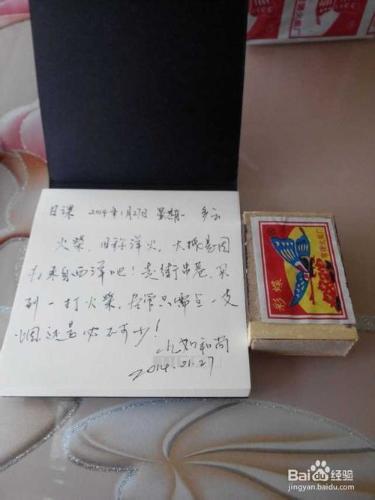 日课 2014年1月27日 星期一 多云
火柴，旧称洋火，大概是因
为来自西洋吧！走街串巷，见
到一打火柴，居常只需点一支
烟还是必不可少！
和尚
2014.01.27
彩蝶
Baidu经验
jingyan.baidu.com